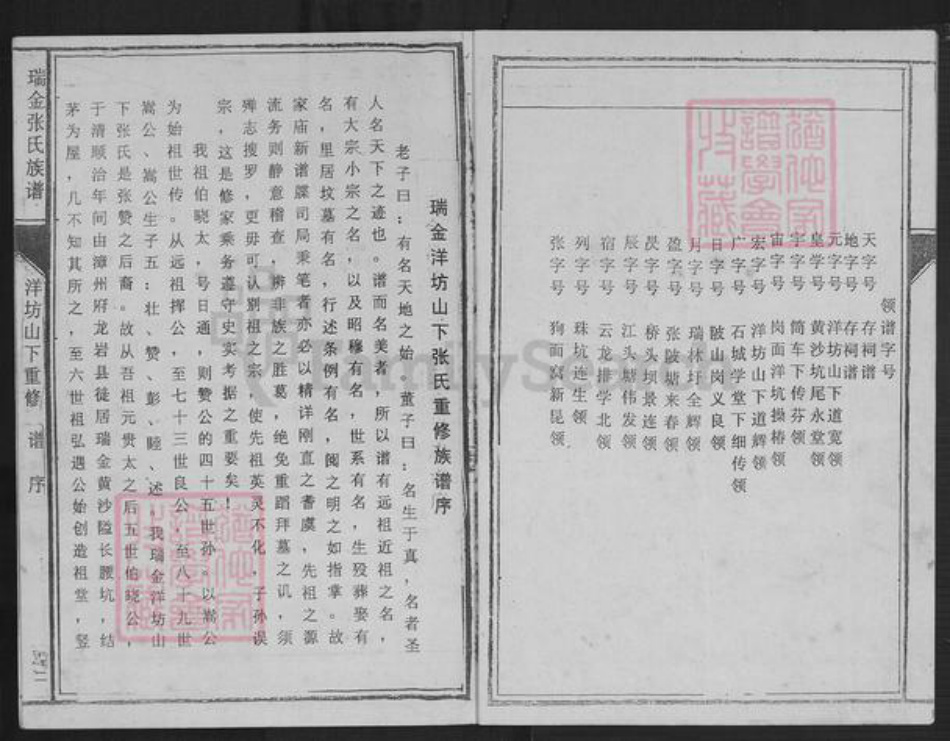 领谱字号
天字号 存祠谱
地字号 存祠谱
元字号 洋坊山下道宽领
皇学号 黄沙坑尾永堂领
宇字号 筒车下传芬领
宙字号 岗面洋坑操椿领
宏字号 洋坊山下道辉领
广字号 石城学堂下细传领
日字号 陂山岗义良领
月字号 瑞林圩全辉领
盈字号 张陂塘来春领
昃字号 桥头坝景连领
辰字号 江头塘伟发领
宿字号 云龙排学北领
列字号 珠坑连生领
张字号 狗面窝新昆领
瑞金洋坊山下张氏重修族谱序
老子曰：有名天地之始，董子曰：名生于真，名者圣
人名天下之迹也。谱而名美者，所以谱有远祖近祖之名，
有大宗小宗之名，以及昭穆有名，世系有名，生殁葬娶有
名，里居坟墓有名，行述条例有名，阅之明之如指掌。故
家庙新谱牒司局秉笔者亦必以精详刚直之耆虞，先祖之源
流务则静意稽查，辨非族之胜葛，绝免重蹈拜墓之讥，须
殚志搜罗，更毋可认别祖之宗，使先祖英灵不化，子孙误
宗，这是修家乘务遵守史实考据之重要矣！
我祖伯晓太，号日通，则赞公的四十五世孙。以嵩公
为始祖世传。从远祖挥公，至七十三世良公，至八十九世
嵩公、嵩公生子五：壮、赞、彭、睦、述，我瑞金洋坊山
下张氏是张赞之后裔。故从吾祖元贵太之后五世伯晓公，
于清顺治年间由漳州府龙岩县徒居瑞金黄沙隘长腰坑，结
茅为屋，几不知其所之，至六世祖弘遇公始创造祖堂，竖
瑞金张氏族谱
洋坊山下重修 谱序
FamilySearch